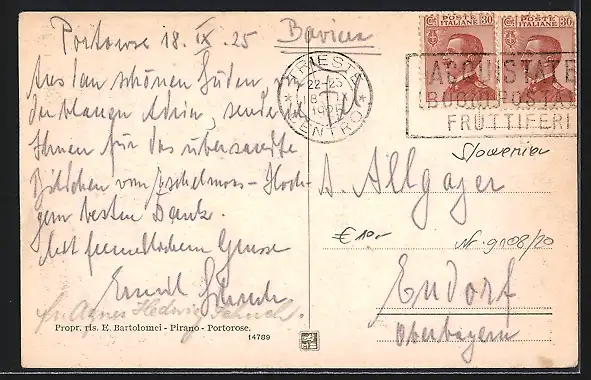 Portorose 18. IX. 25 Baviera
Aus dem schönen Süden von
der blauen Adria, sende
Ihnen für das übersandte
Bildchen vom
gern besten Dank.
Mit freundlichem Grusse
Emil
Agnes Hedwig
Propr. ris. E. Bartolomei - Pirano - Portorose.
14789
TRIESTE
22-23
CENTRO
POSTE ITALIANE 30
POSTE ITALIANE 30
ACQUISTATE
BUONI POSTALI
FRUTTIFERI
Slowenien
A. Allgayer
€ 10.-
Nr. 9108/20
Endorf
Oberbayern